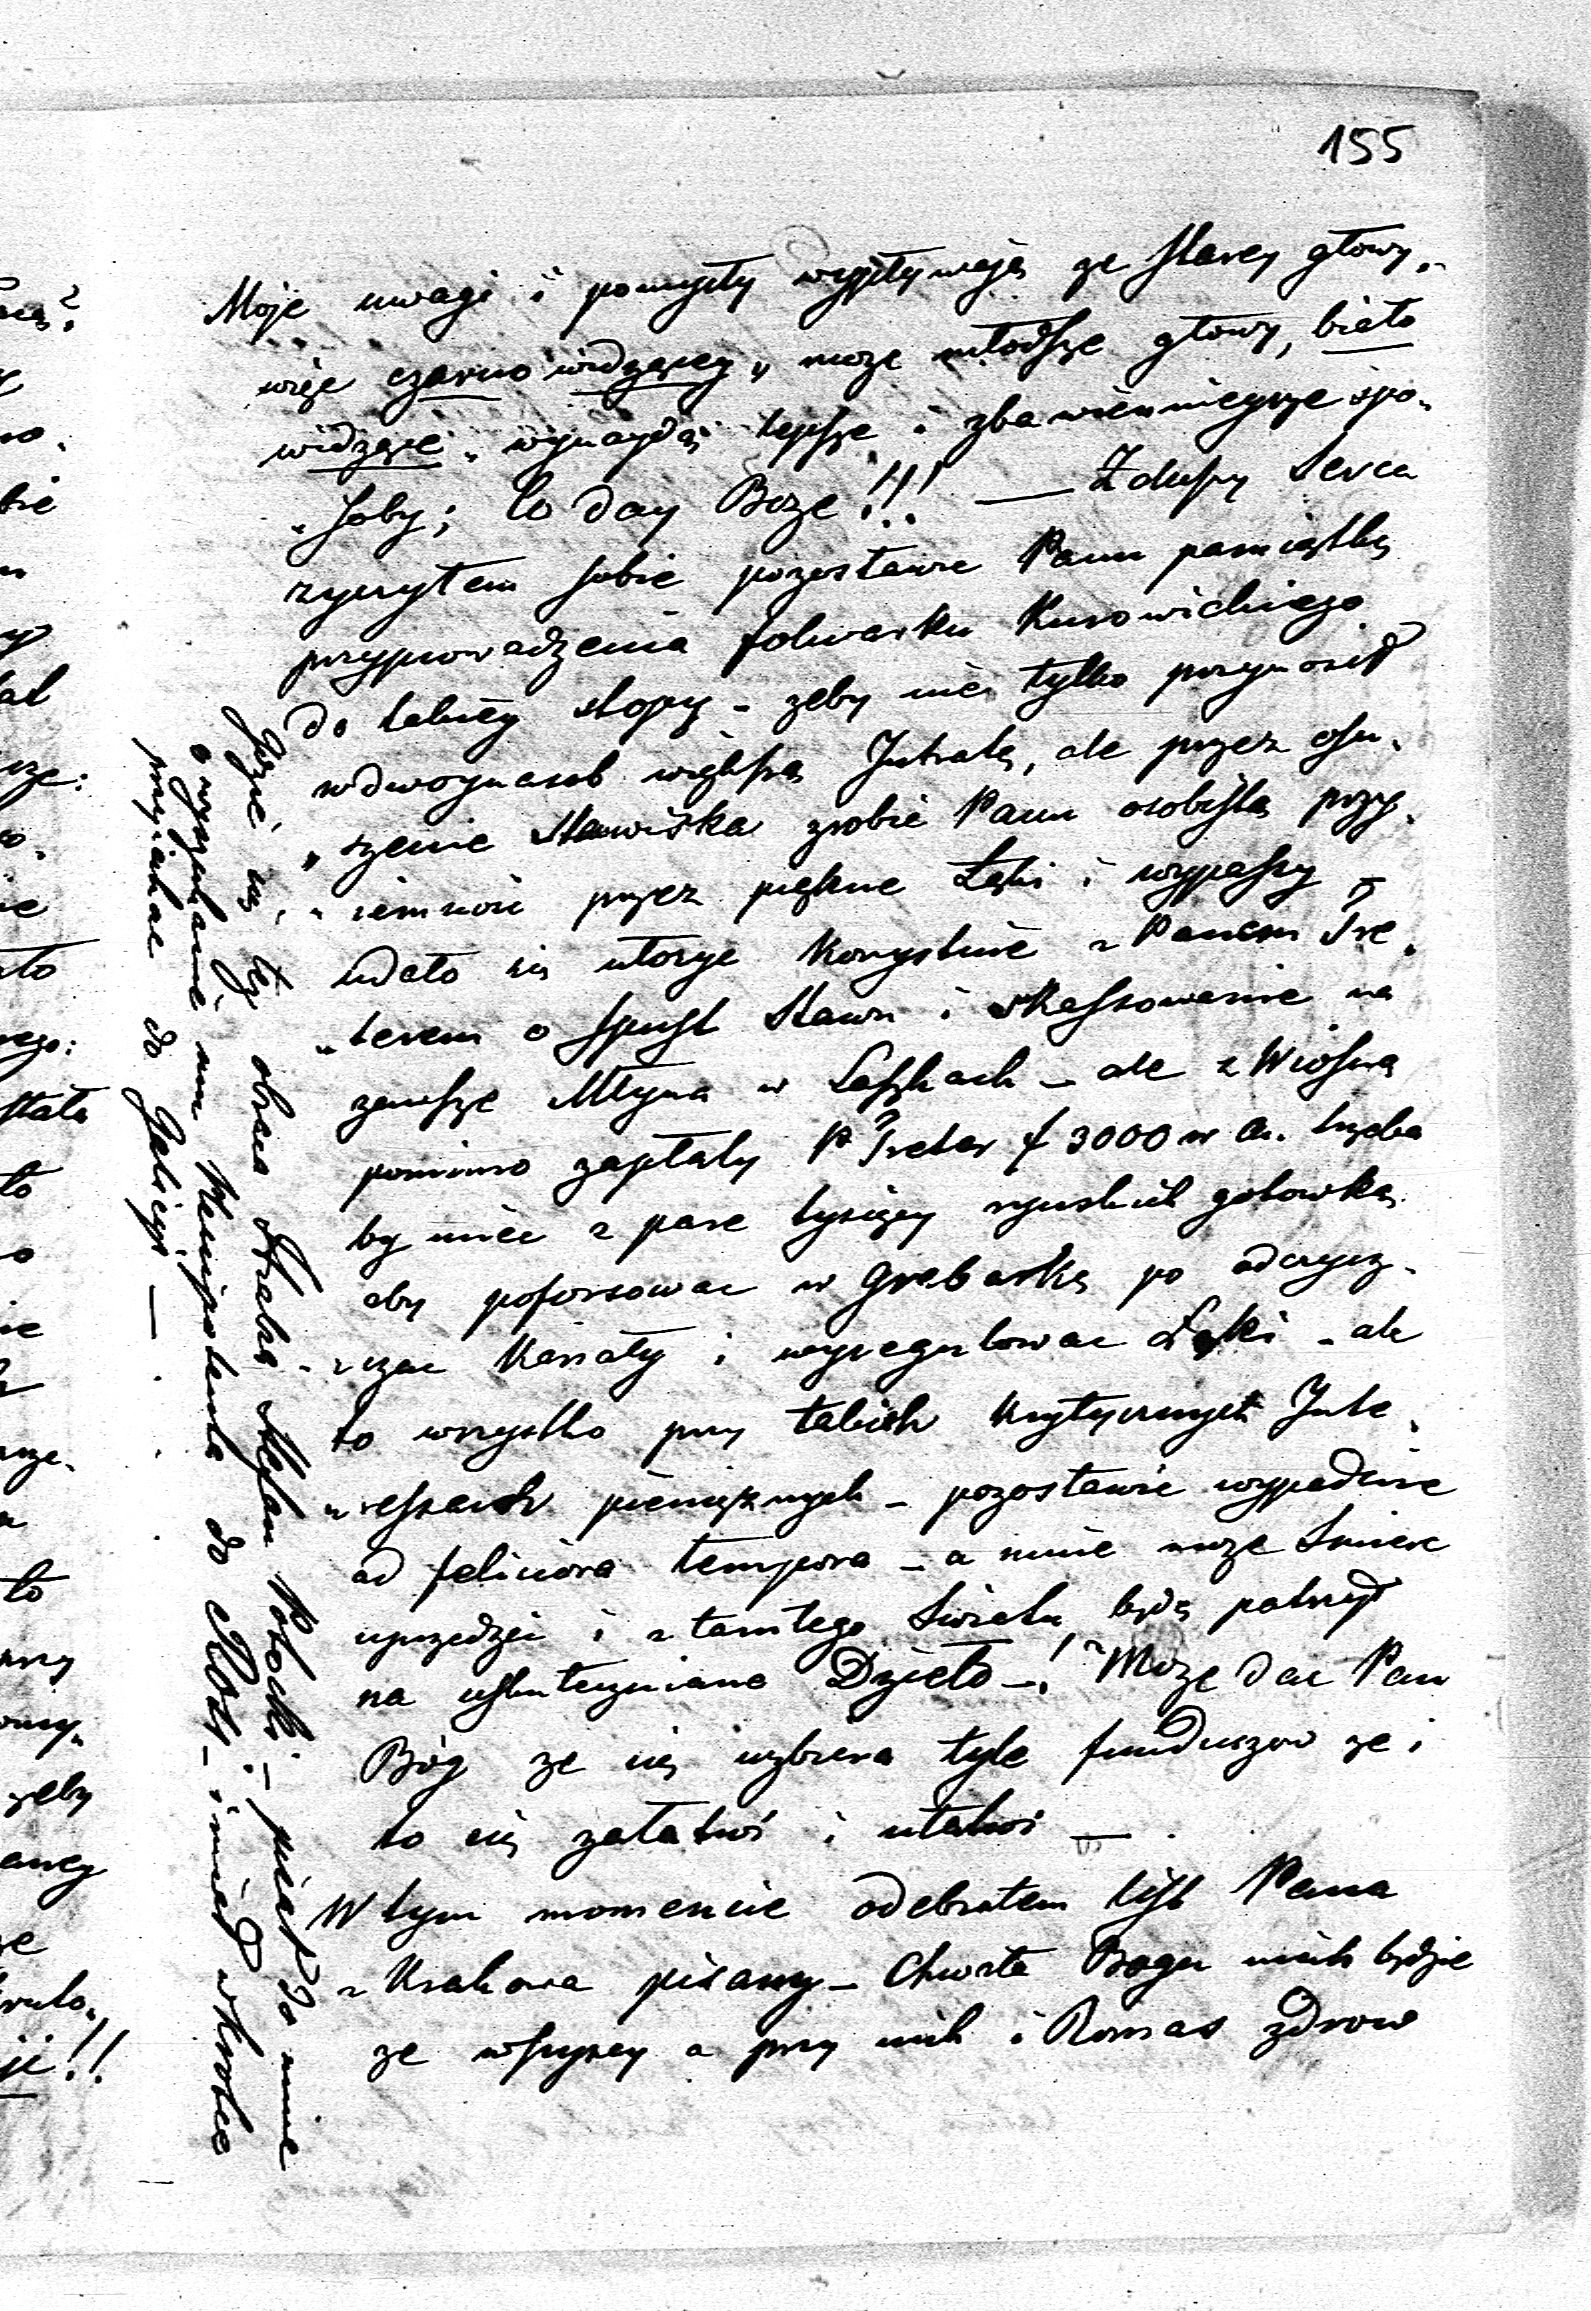 155
Moje uwagi i pomysły wypływają ze starey głowy,
więc czarno widzącey, może młodsze głowy, biało
widzące, wynaydą lepsze i zbawiennieysze spo-
soby; to day Boze!!! — Z duszy serca
zyczyłem sobie pozostawić Panu pamiątkę
przyprowadzenia folwarku Kurowickiego
do takiey stopy - zeby nie tylko przynosił
wdwoynasob większą Intratę, ale przez osu-
szenie Stawiska zrobić Panu osobistą przy-
iemność przez piękne Łąki i wypasy
udało się ułozyc korzystnie z Panem Tre-
terem o spust Stawu i skassowanie na
zawsze Młyna w Laszkach - ale z Wiosną
pomimo zapłaty P Treter f 3000 w a. trzeba
by miec z pare tysięcy ryńskich gotowką
aby poforsowac w Grabarkę po odczysz-
czac Kanały i wyregulowac Łąki - ale
to wszystko przy takich krytycznych Inte-
ressach pieniężnych - pozostawie wypadnie
ad feliciora tempora - a mnie moze Smierc
uprzedzić i z tamtego Swiata będę patrzył
na uskutecznione Dzieło -! Moze dac Pan
Bóg ze się uzbiera tyle funduszow ze i
to się załatwi i ułatwi —
W tym momencie odebrałem list Pana
z Krakowa pisany - Chwała Bogu niech będzie
ze wszyscy a przy nich i Romas zdrow
gdzie się tez obraca Hrabia Stefan Potocki - pisał do mnie
o wyszukanie mu Plenipotenta do - i miał wkrotce
przyiechac do Galicyi —